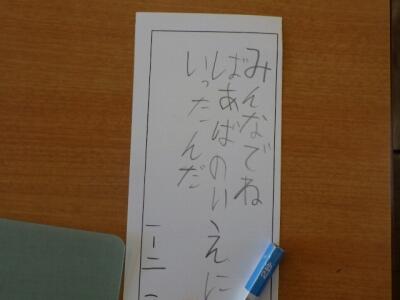 みんなでね
ばあばのいえに
いったんだ